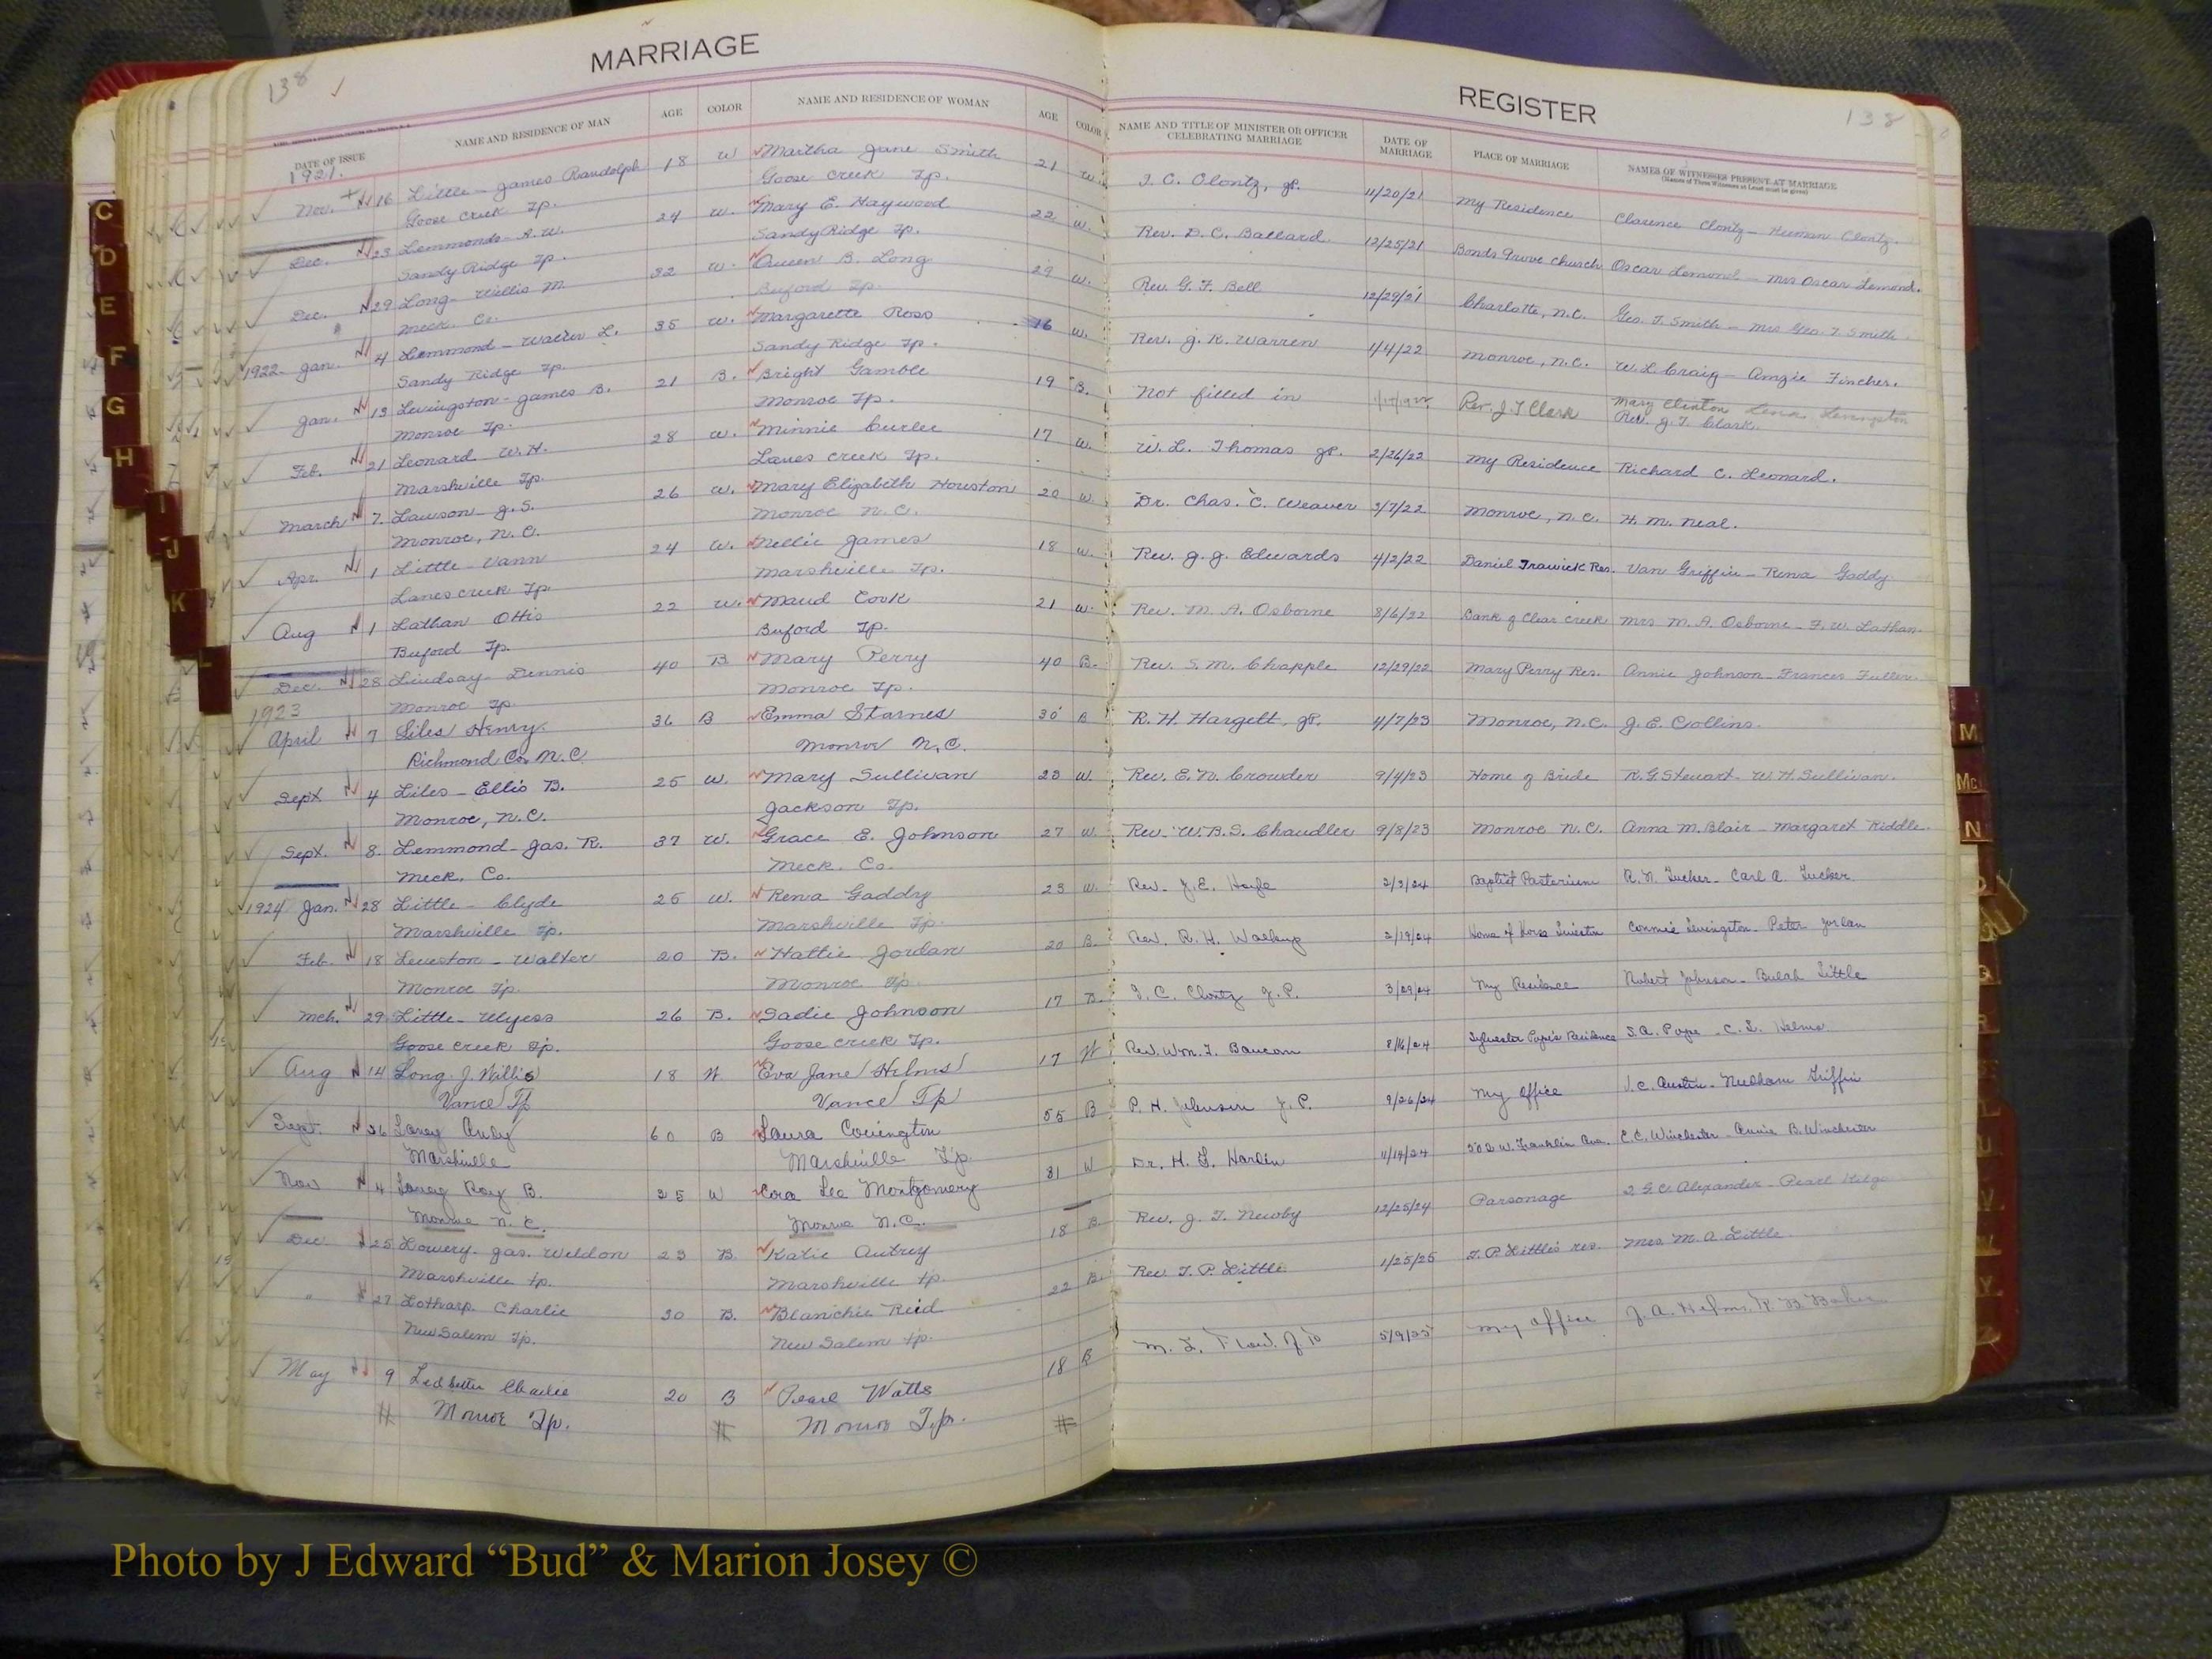 MARRIAGE
REGISTER
138
138
DATE OF ISSUE
NAME AND RESIDENCE OF MAN
AGE
COLOR
NAME AND RESIDENCE OF WOMAN
AGE
COLOR
NAME AND TITLE OF MINISTER OR OFFICER
CELEBRATING MARRIAGE
DATE OF
MARRIAGE
PLACE OF MARRIAGE
NAMES OF WITNESSES PRESENT AT MARRIAGE
1921.
Nov. 16 Little - James Randolph 18 W Martha Jane Smith 21 W. I. C. Clontz, JP. 11/20/21 My Residence Clarence Clontz - Herman Clontz.
Goose Creek Tp. Goose Creek Tp.
Dec. 23 Lemmonds - A. W. 24 W. Mary E. Haywood 22 W. Rev. D. C. Ballard. 12/25/21 Bonds Grove Church Oscar Lemond - Mrs Oscar Lemond.
Sandy Ridge Tp. Sandy Ridge Tp.
Dec. 29 Long - Willis M. 32 W. Queen B. Long 29 W. Rev. G. F. Bell 12/29/21 Charlotte, N.C. Geo. T. Smith - Mrs Geo. T. Smith.
Meck. Co. Buford Tp.
1922 Jan. 4 Lemmond - Walter L. 35 W. Margarette Ross 16 W. Rev. J. R. Warren 1/4/22 Monroe, N.C. W. L. Craig - Amzie Fincher.
Sandy Ridge Tp. Sandy Ridge Tp.
Jan. 13 Levingston - James B. 21 B. Bright Gamble 19 B. Not filled in Rev. J T Clark Mary Clinton Levingston
Monroe Tp. Monroe Tp. Rev. J. T. Clark.
Feb. 21 Leonard W. H. 28 W. Minnie Curlee 17 W. W. L. Thomas JP. 2/26/22 My Residence Richard C. Leonard.
Marshville Tp. Lanes Creek Tp.
March 7. Lawson - J. S. 26 W. Mary Elizabeth Houston 20 W. Dr. Chas. C. Weaver 3/7/22 Monroe, N.C. H. M. Neal.
Monroe, N.C. Monroe N.C.
Apr. 1 Little - Vann 24 W. Nellie James 18 W. Rev. J. J. Edwards 4/2/22 Daniel Trawick Res. Van Griffin - Rena Gaddy
Lanes Creek Tp Marshville Tp.
Aug 1 Lathan Ottis 22 W. Maud Cook 21 W. Rev. M. A. Osborne 8/6/22 Bank of Clear Creek Mrs M. A. Osborne - F. W. Lathan.
Buford Tp. Buford Tp.
Dec. 28 Lindsay - Dennis 40 B Mary Perry 40 B. Rev. S. M. Chapple 12/29/22 Mary Perry Res. Annie Johnson - Frances Fuller.
Monroe Tp. Monroe Tp.
1923
April 7 Liles Henry 36 B Emma Starnes 30 B R. H. Hargett, JP. 4/7/23 Monroe, N.C. J. E. Collins.
Richmond Co. N.C. Monroe N.C.
Sept 4 Liles - Ellis B. 25 W. Mary Sullivan 23 W. Rev. E. N. Crowder 9/4/23 Home of Bride R. G. Stewart - W. H. Sullivan.
Monroe, N.C. Jackson Tp.
Sept. 8. Lemmond - Jas. R. 37 W. Grace E. Johnson 27 W. Rev. W. B. S. Chandler 9/8/23 Monroe N.C. Anna M. Blair - Margaret Riddle.
Meck. Co. Meck. Co.
1924 Jan. 28 Little - Clyde 25 W. Rena Gaddy 23 W. Rev. J. E. Hoyle 2/3/24 Baptist Pastorium R. N. Tucker - Carl A. Tucker
Marshville Tp. Marshville Tp.
Feb. 18 Leveston - Walter 20 B. Hattie Jordan 20 B. Rev. R. H. Walkup 2/19/24 Connie Livingston - Peter Jordan
Monroe Tp. Monroe Tp.
Mch. 29 Little - Ulyess 26 B. Sadie Johnson 17 B. I. C. Clontz J. P. 3/29/24 My Residence Robert Johnson - Bulah Little
Goose Creek Tp. Goose Creek Tp.
Aug 14 Long - J. Willis 18 W Eva Jane Helms 17 W Rev. Wm. T. Baucom 8/16/24 Sylvester Pope's Residence S. A. Pope - C. L. Helms
Vance Tp Vance Tp
Sept. 26 Laney Andy 60 B Laura Covington 55 B P. H. Johnson J. P. 9/26/24 My Office J. C. Austin - Needham Griffin
Marshville Marshville Tp.
Nov 4 Laney Roy B. 35 W Cora Lee Montgomery 31 W Dr. H. G. Hardin 11/14/24 502 W. Franklin Ave. E. C. Winchester - Annie B. Winchester
Monroe N.C. Monroe N.C.
Dec 25 Lowery - Jas. Weldon 23 B. Katie Autrey 18 B Rev. J. T. Newby 12/25/24 Parsonage Alexander - Pearl
Marshville tp. Marshville tp.
" 27 Lotharp Charlie 30 B. Blanchie Reid 22 B. Rev T. P. Little 1/25/25 T. P. Little's res. Mrs. M. A. Little
New Salem Tp. New Salem tp.
May 9 Ledbetter Charlie 20 B Pearl Watts 18 B M. L. Flow. J P 5/9/25 My Office J. A. Helms, R. B. Baker
Monroe Tp. Monroe Tp.
C
D
E
F
G
H
I
J
K
L
M
Mc
N
Photo by J Edward “Bud” & Marion Josey ©